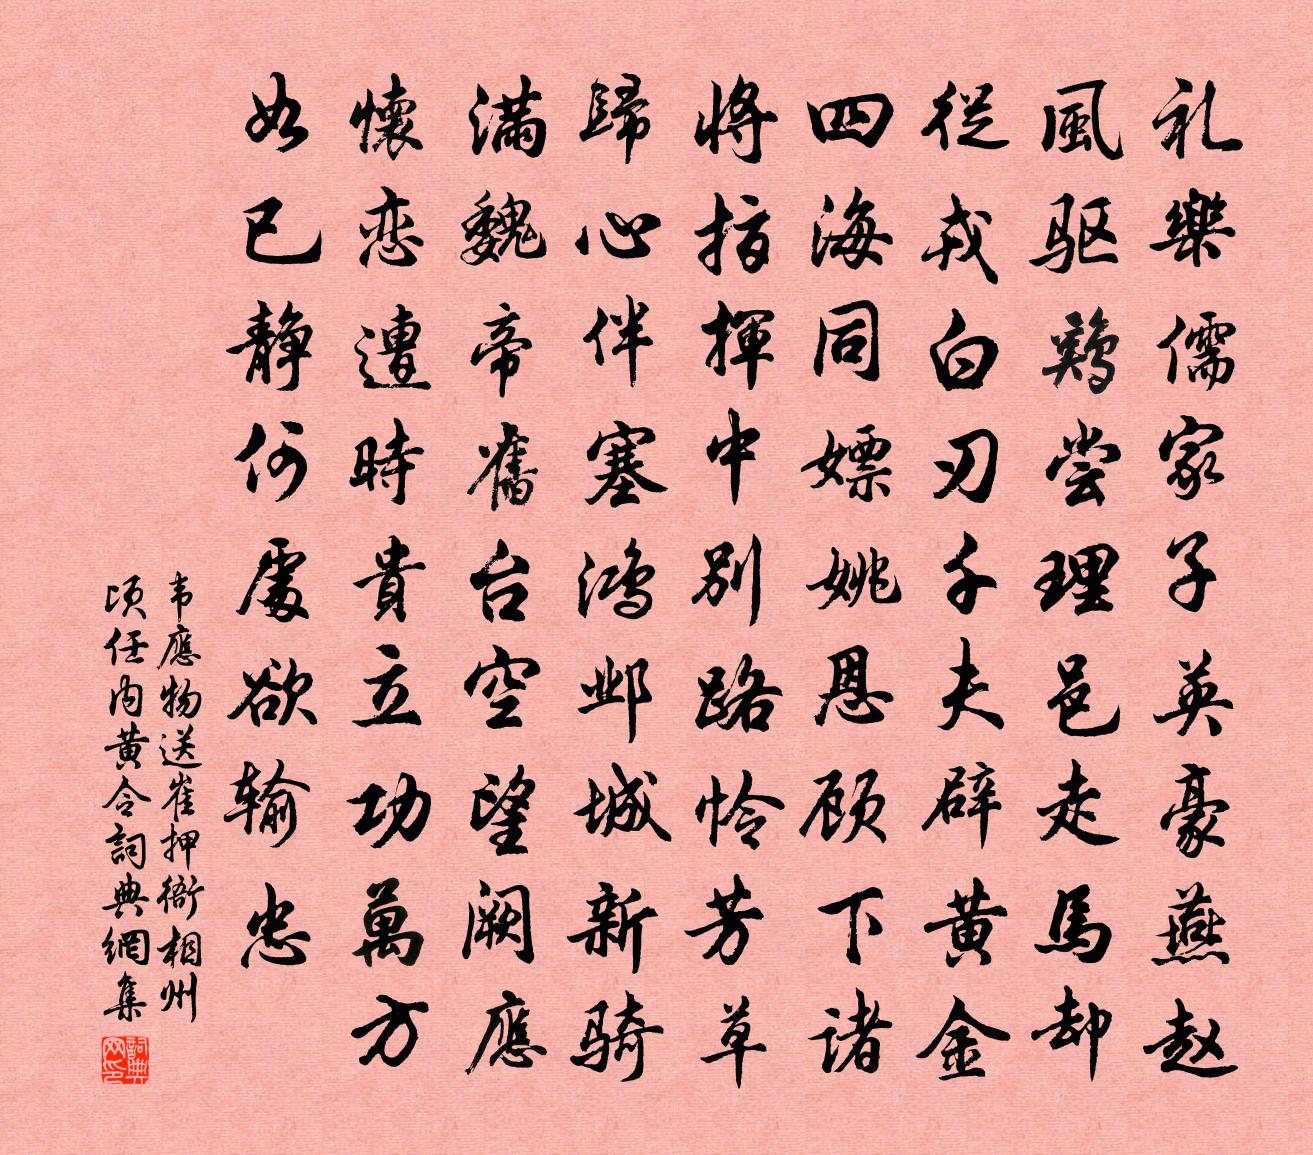 礼樂儒家子英豪燕赵
風驱鷄尝理邑走馬却
從戎白刃千夫辟黄金
四海同嫖姚恩顾下诸
將指揮中別路怜芳草
歸心伴塞鸿邺城新骑
满魏帝舊台空望阙應
懷恋遭時貴立功萬方
如已静何處欲输忠
韦應物送崔押衙相州
顷任内黄令詞典網集
詞典网印